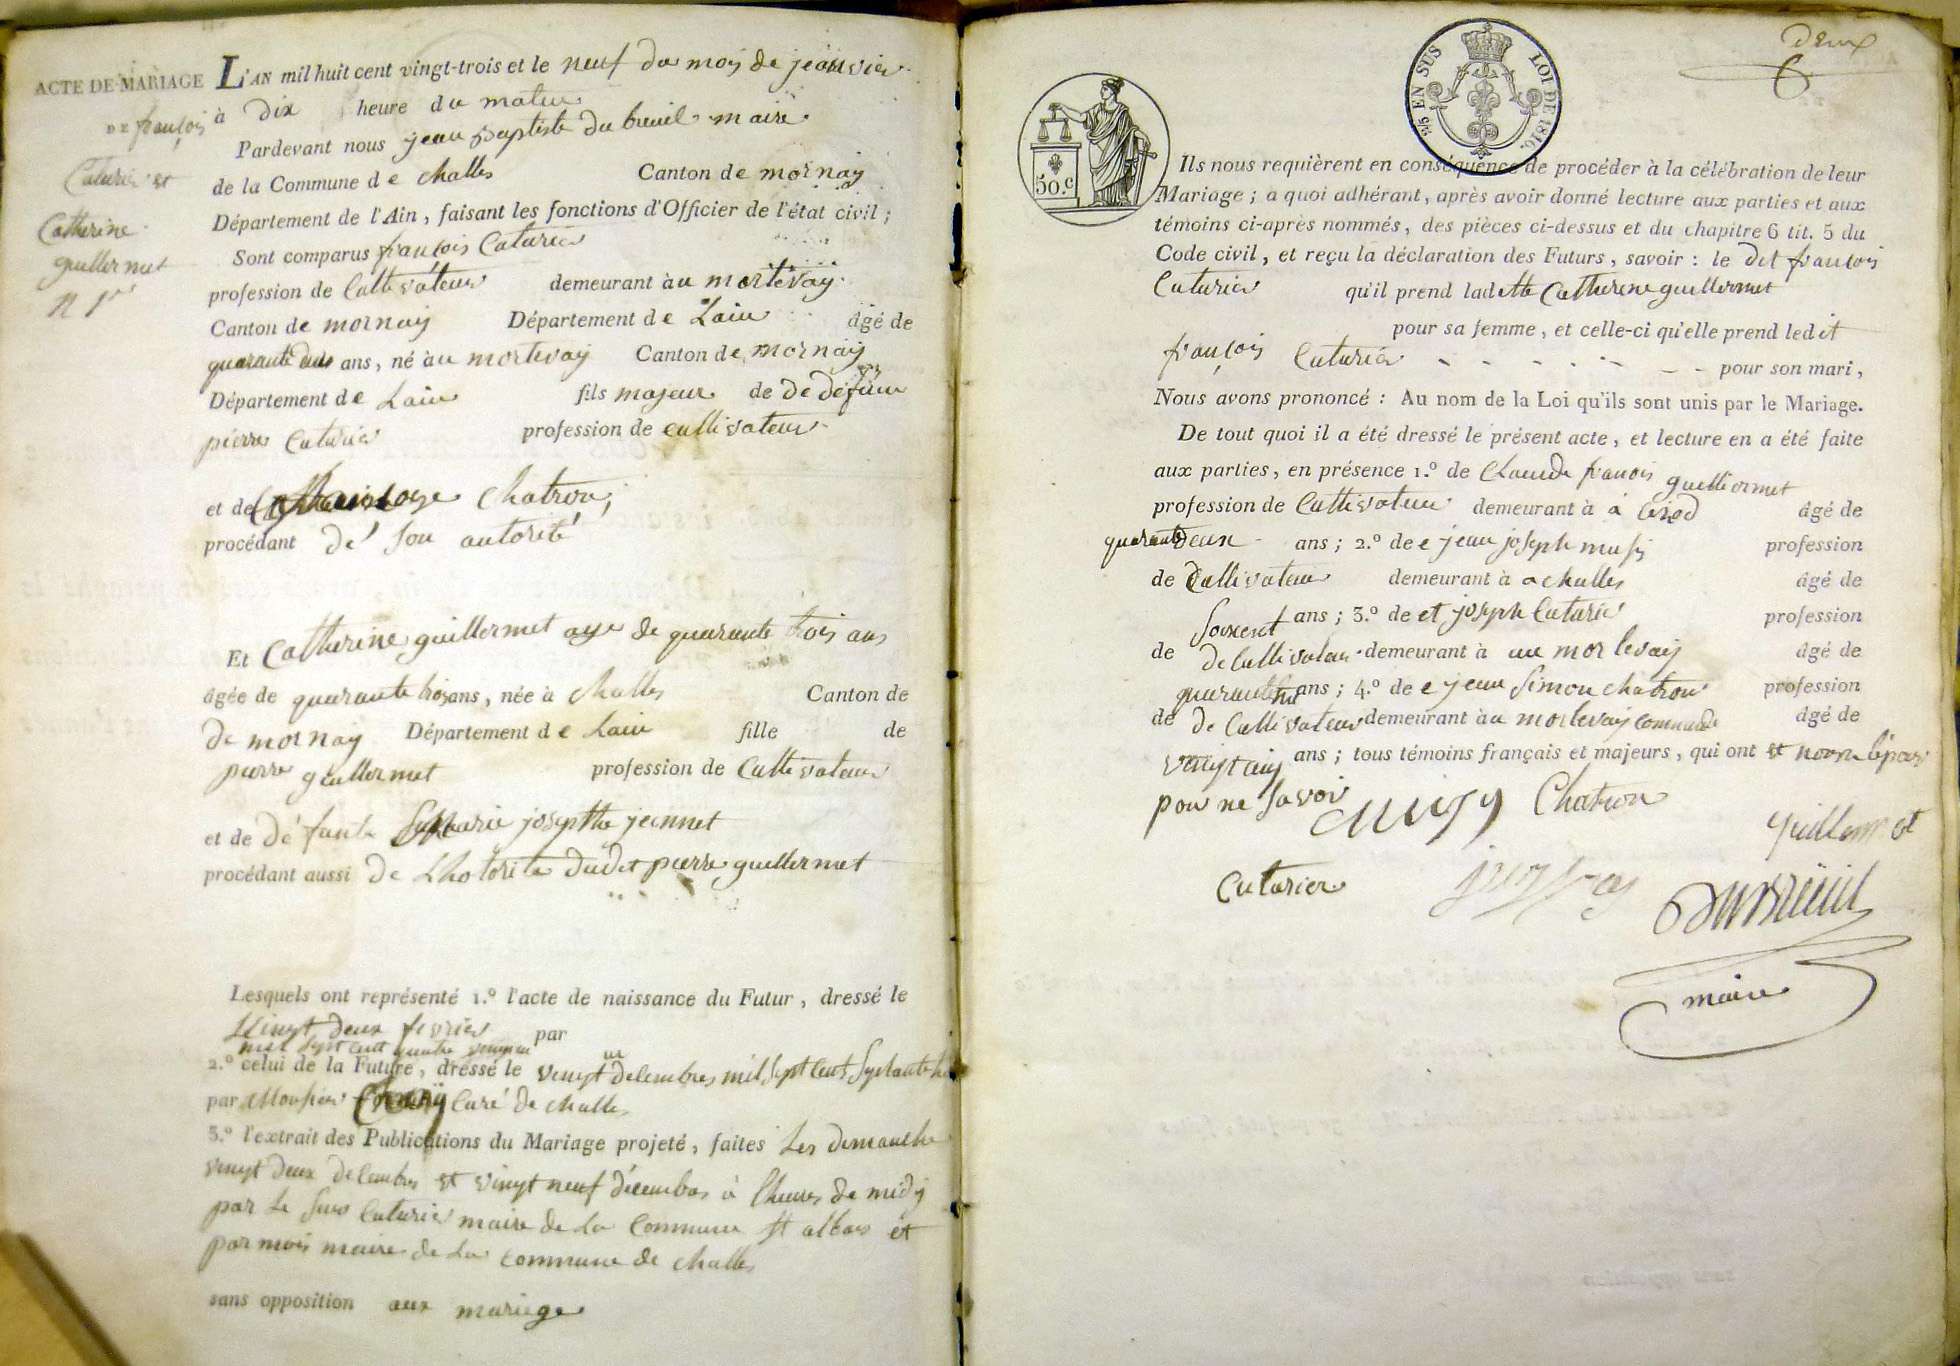 ACTE DE MARIAGE
DE françois
Cuturier et
Catherine
guillermet
L'AN mil huit cent vingt-trois et le neuf du mois de jeanvier
à Dix heure du matin
Pardevant nous jean Baptiste Dubreuil maire
de la Commune de Challes Canton de mornay
Département de l'Ain, faisant les fonctions d'Officier de l'état civil;
Sont comparus françois Cuturier
profession de Cultivateur demeurant à au mortevay
Canton de mornay Département de Lain âgé de
quarante deux ans, né à au mortevay Canton de mornay
Département de Lain fils majeur de de défun
pierre Cuturier profession de cultivateur
et de Chatron,
procédant dé son autorité
Et Catherine guillermet age de quarante trois ans
âgée de quarante trois ans, née à Challes Canton de
de mornay Département de Lain fille de
pierre guillermet profession de Cultivateur
et de défunte marie josepthe jeannet
procédant aussi de Lhotorite dudet pierre guillermet
Lesquels ont représenté 1.º l'acte de naissance du Futur, dressé le
Vingt deux fevrier par
mil sept cent quatre
2.º celui de la Future, dressé le vingt un decembres mil sept cent
par Monsieur Curé de challes
3.º l'extrait des Publications du Mariage projeté, faites Les dimanche
vingt deux decembres et vingt neuf décembres à lheures de midy
par Le sieur Cuturier maire de La Commune st alban et
par mois maire de La commune de challes
sans opposition aux mariege
deux
6
2/5 EN SUS LOI DE 1816.
50.c
Ils nous requièrent en conséquence de procéder à la célébration de leur
Mariage; a quoi adhérant, après avoir donné lecture aux parties et aux
témoins ci-après nommés, des pièces ci-dessus et du chapitre 6 tit. 5 du
Code civil, et reçu la déclaration des Futurs, savoir: le dit françois
Cuturier qu'il prend ladette Catherine guillermet
pour sa femme, et celle-ci qu'elle prend ledit
françois Cuturier - - - - - - - pour son mari,
Nous avons prononcé: Au nom de la Loi qu'ils sont unis par le Mariage.
De tout quoi il a été dressé le présent acte, et lecture en a été faite
aux parties, en présence 1.º de Claude franois guilliermet
profession de Cultivateur demeurant à à âgé de
quarante deux ans; 2.º de e jean joseph musy profession
de Cultivateur demeurant à a challes âgé de
Soixent ans; 3.º de et joseph Cuturier profession
de de Cultivateur demeurant à au mortevay âgé de
quarante ans; 4.º de e jean Simon chatron profession
de de Cultivateur demeurant à au mortevay commune de âgé de
vingt cinq ans; tous témoins français et majeurs, qui ont et
pour ne savoir
musy Chatron guillermet
Cuturier Dubreuil
maire